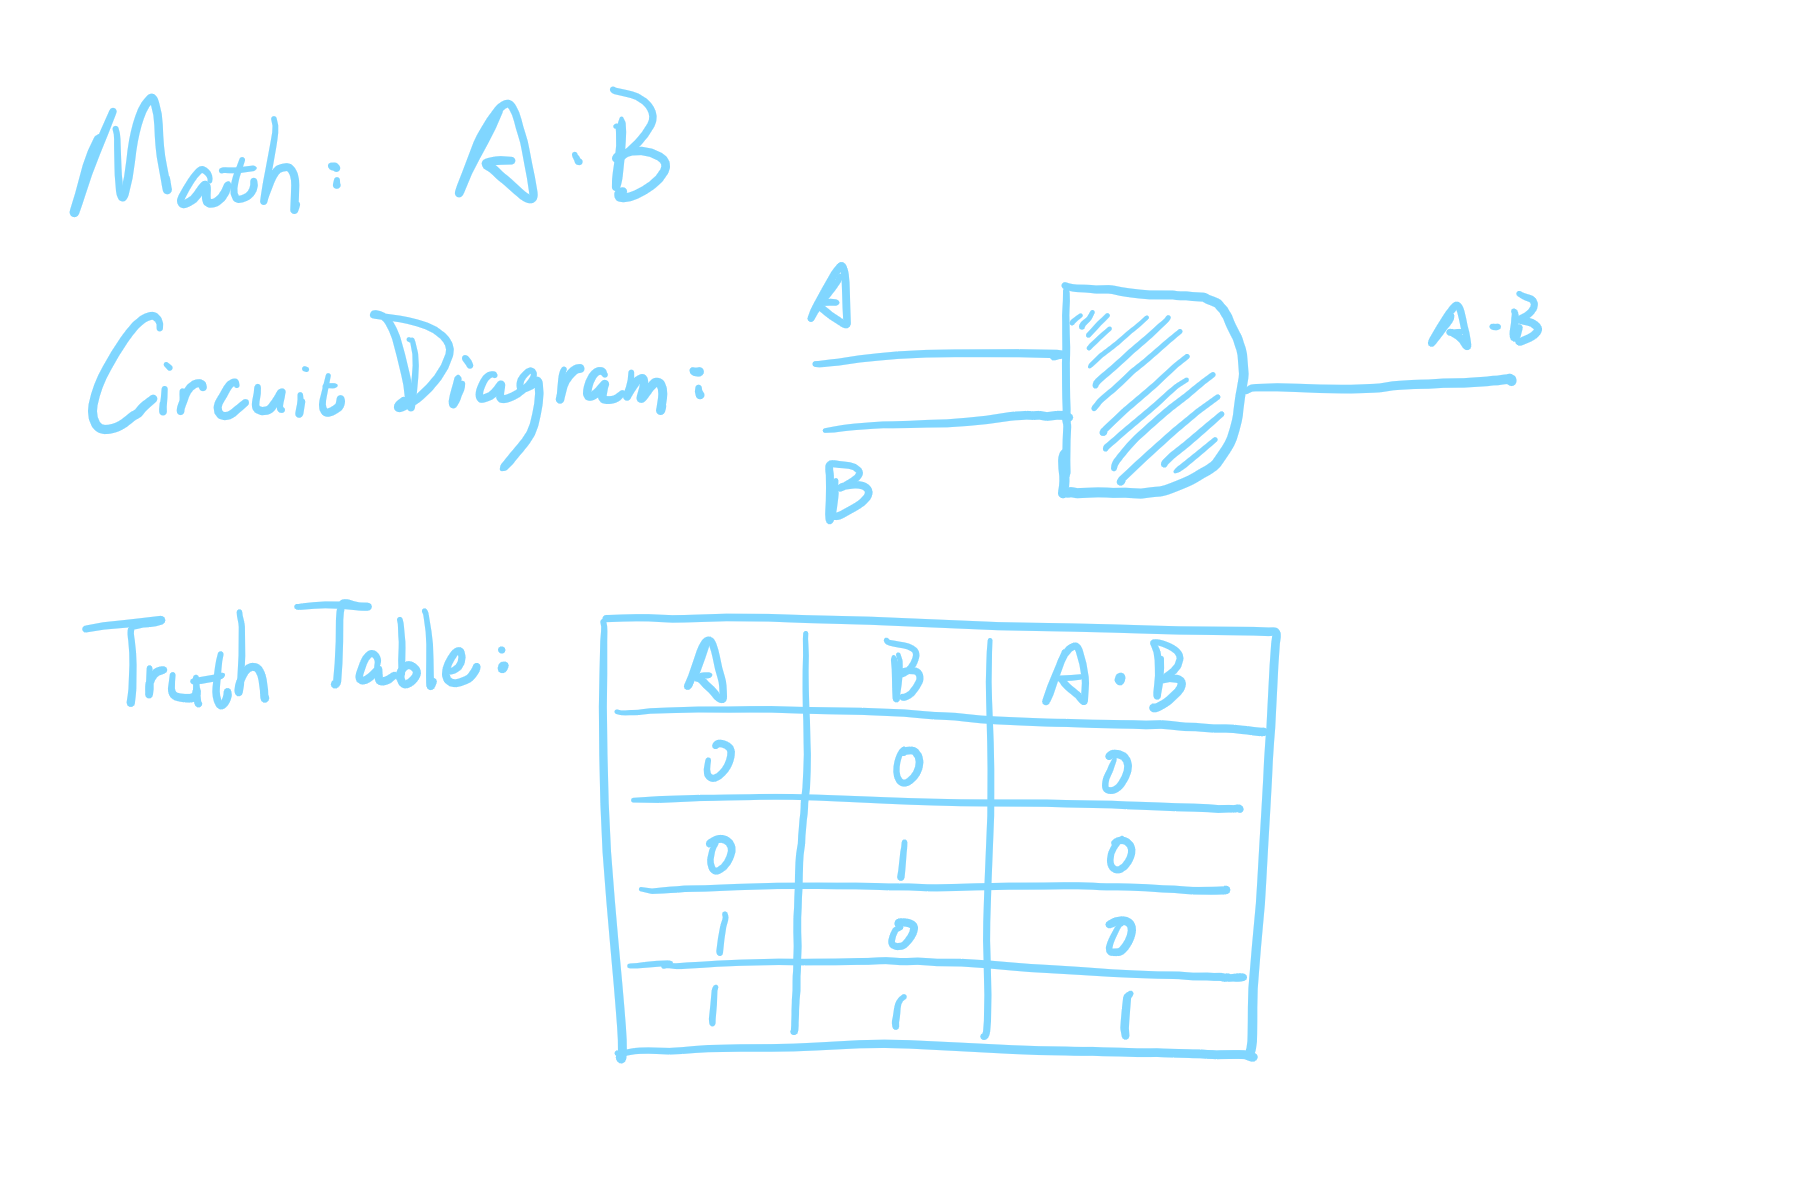 Math: A · B
A
A · B
Circuit Diagram:
B
Truth Table:
A B A · B
0 0 0
0 1 0
1 0 0
1 1 1